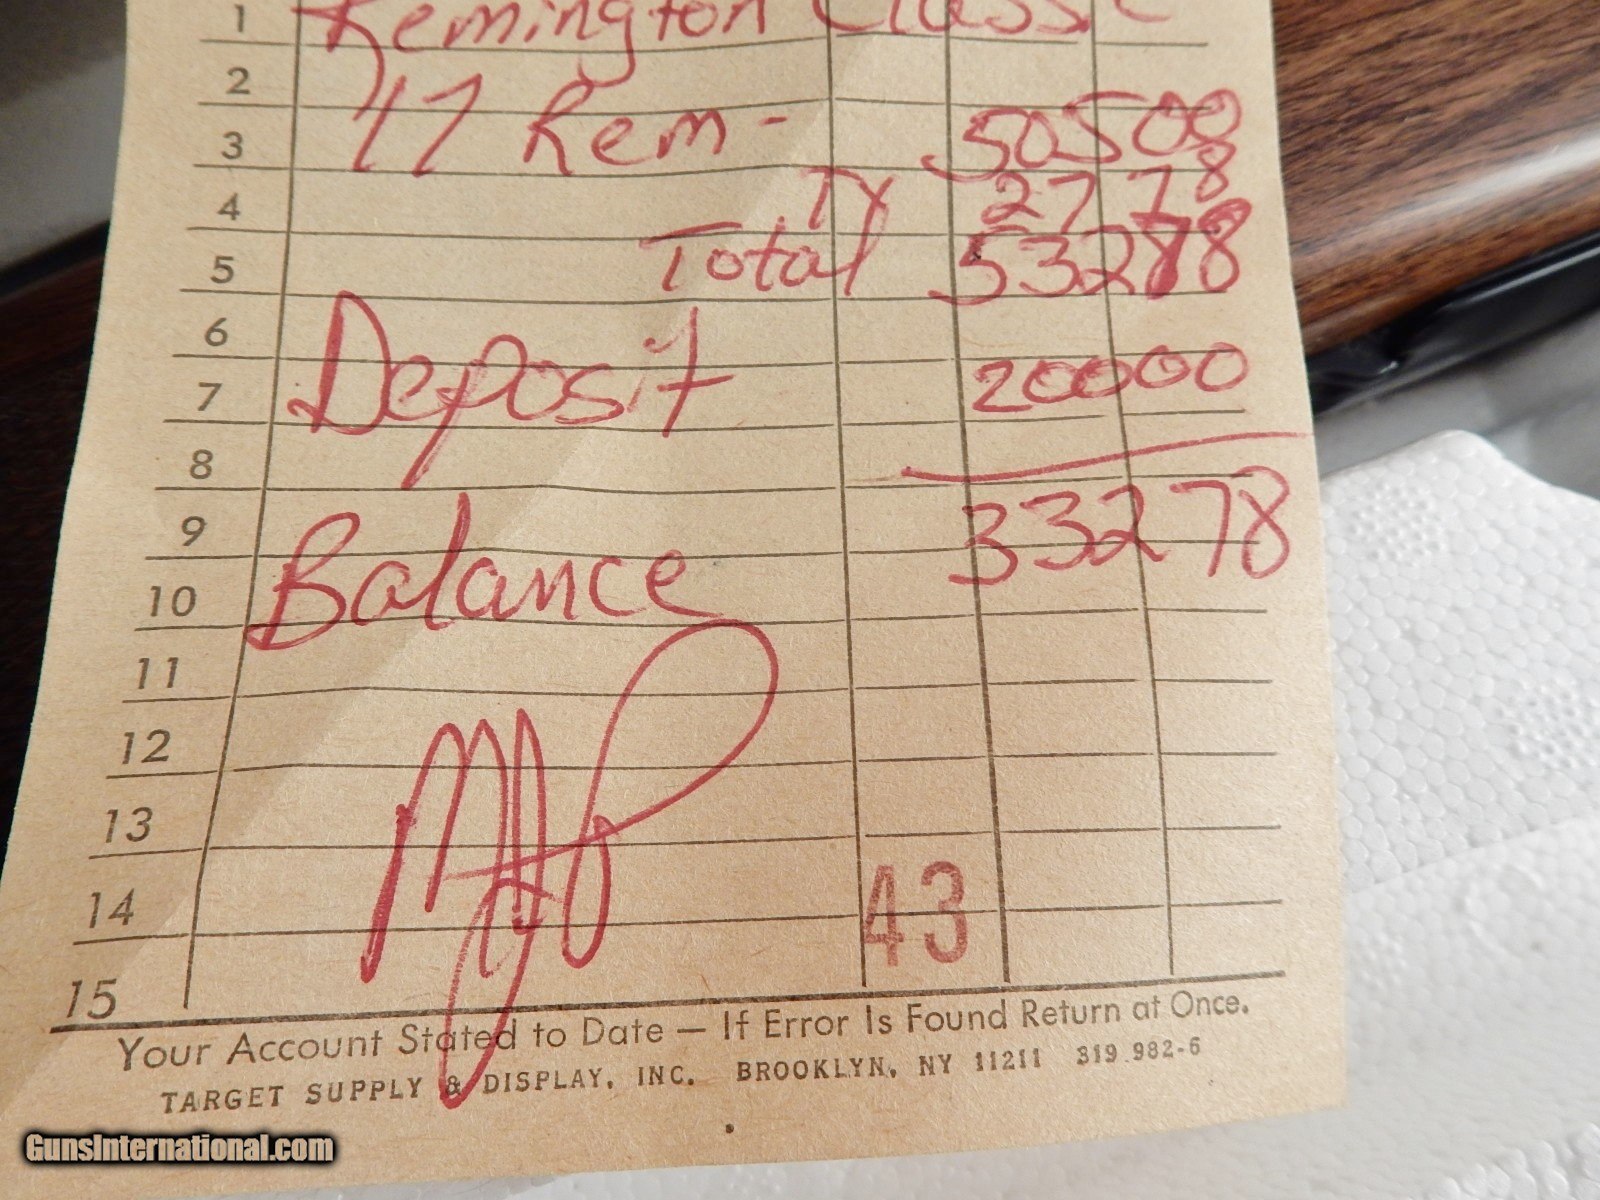 1 Remington Classic
2
3 17 Rem - 50500
4 TX 27 78
5 Total 53278
6
7 Deposit 20000
8
9 33278
10 Balance
11
12
13
14 43
15
Your Account Stated to Date — If Error Is Found Return at Once.
TARGET SUPPLY & DISPLAY, INC. BROOKLYN, NY 11211 319.982-6
GunsInternational.com